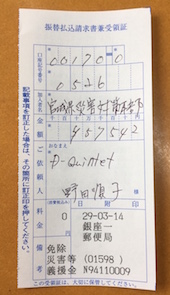 振替払込請求書兼受領証
00170 0
1526
加入者名
宮城県災害対策本部
金額
457542
おなまえ
ご依頼人
D-Quintet
野田順子
料金
日附印
備考
0
29-03-14
銀座一
郵便局
免除
災害等(01598)
義援金 N94110009
記載事項を訂正した場合は、その箇所に訂正印を押してください。
この受領証は、大切に保管してください。